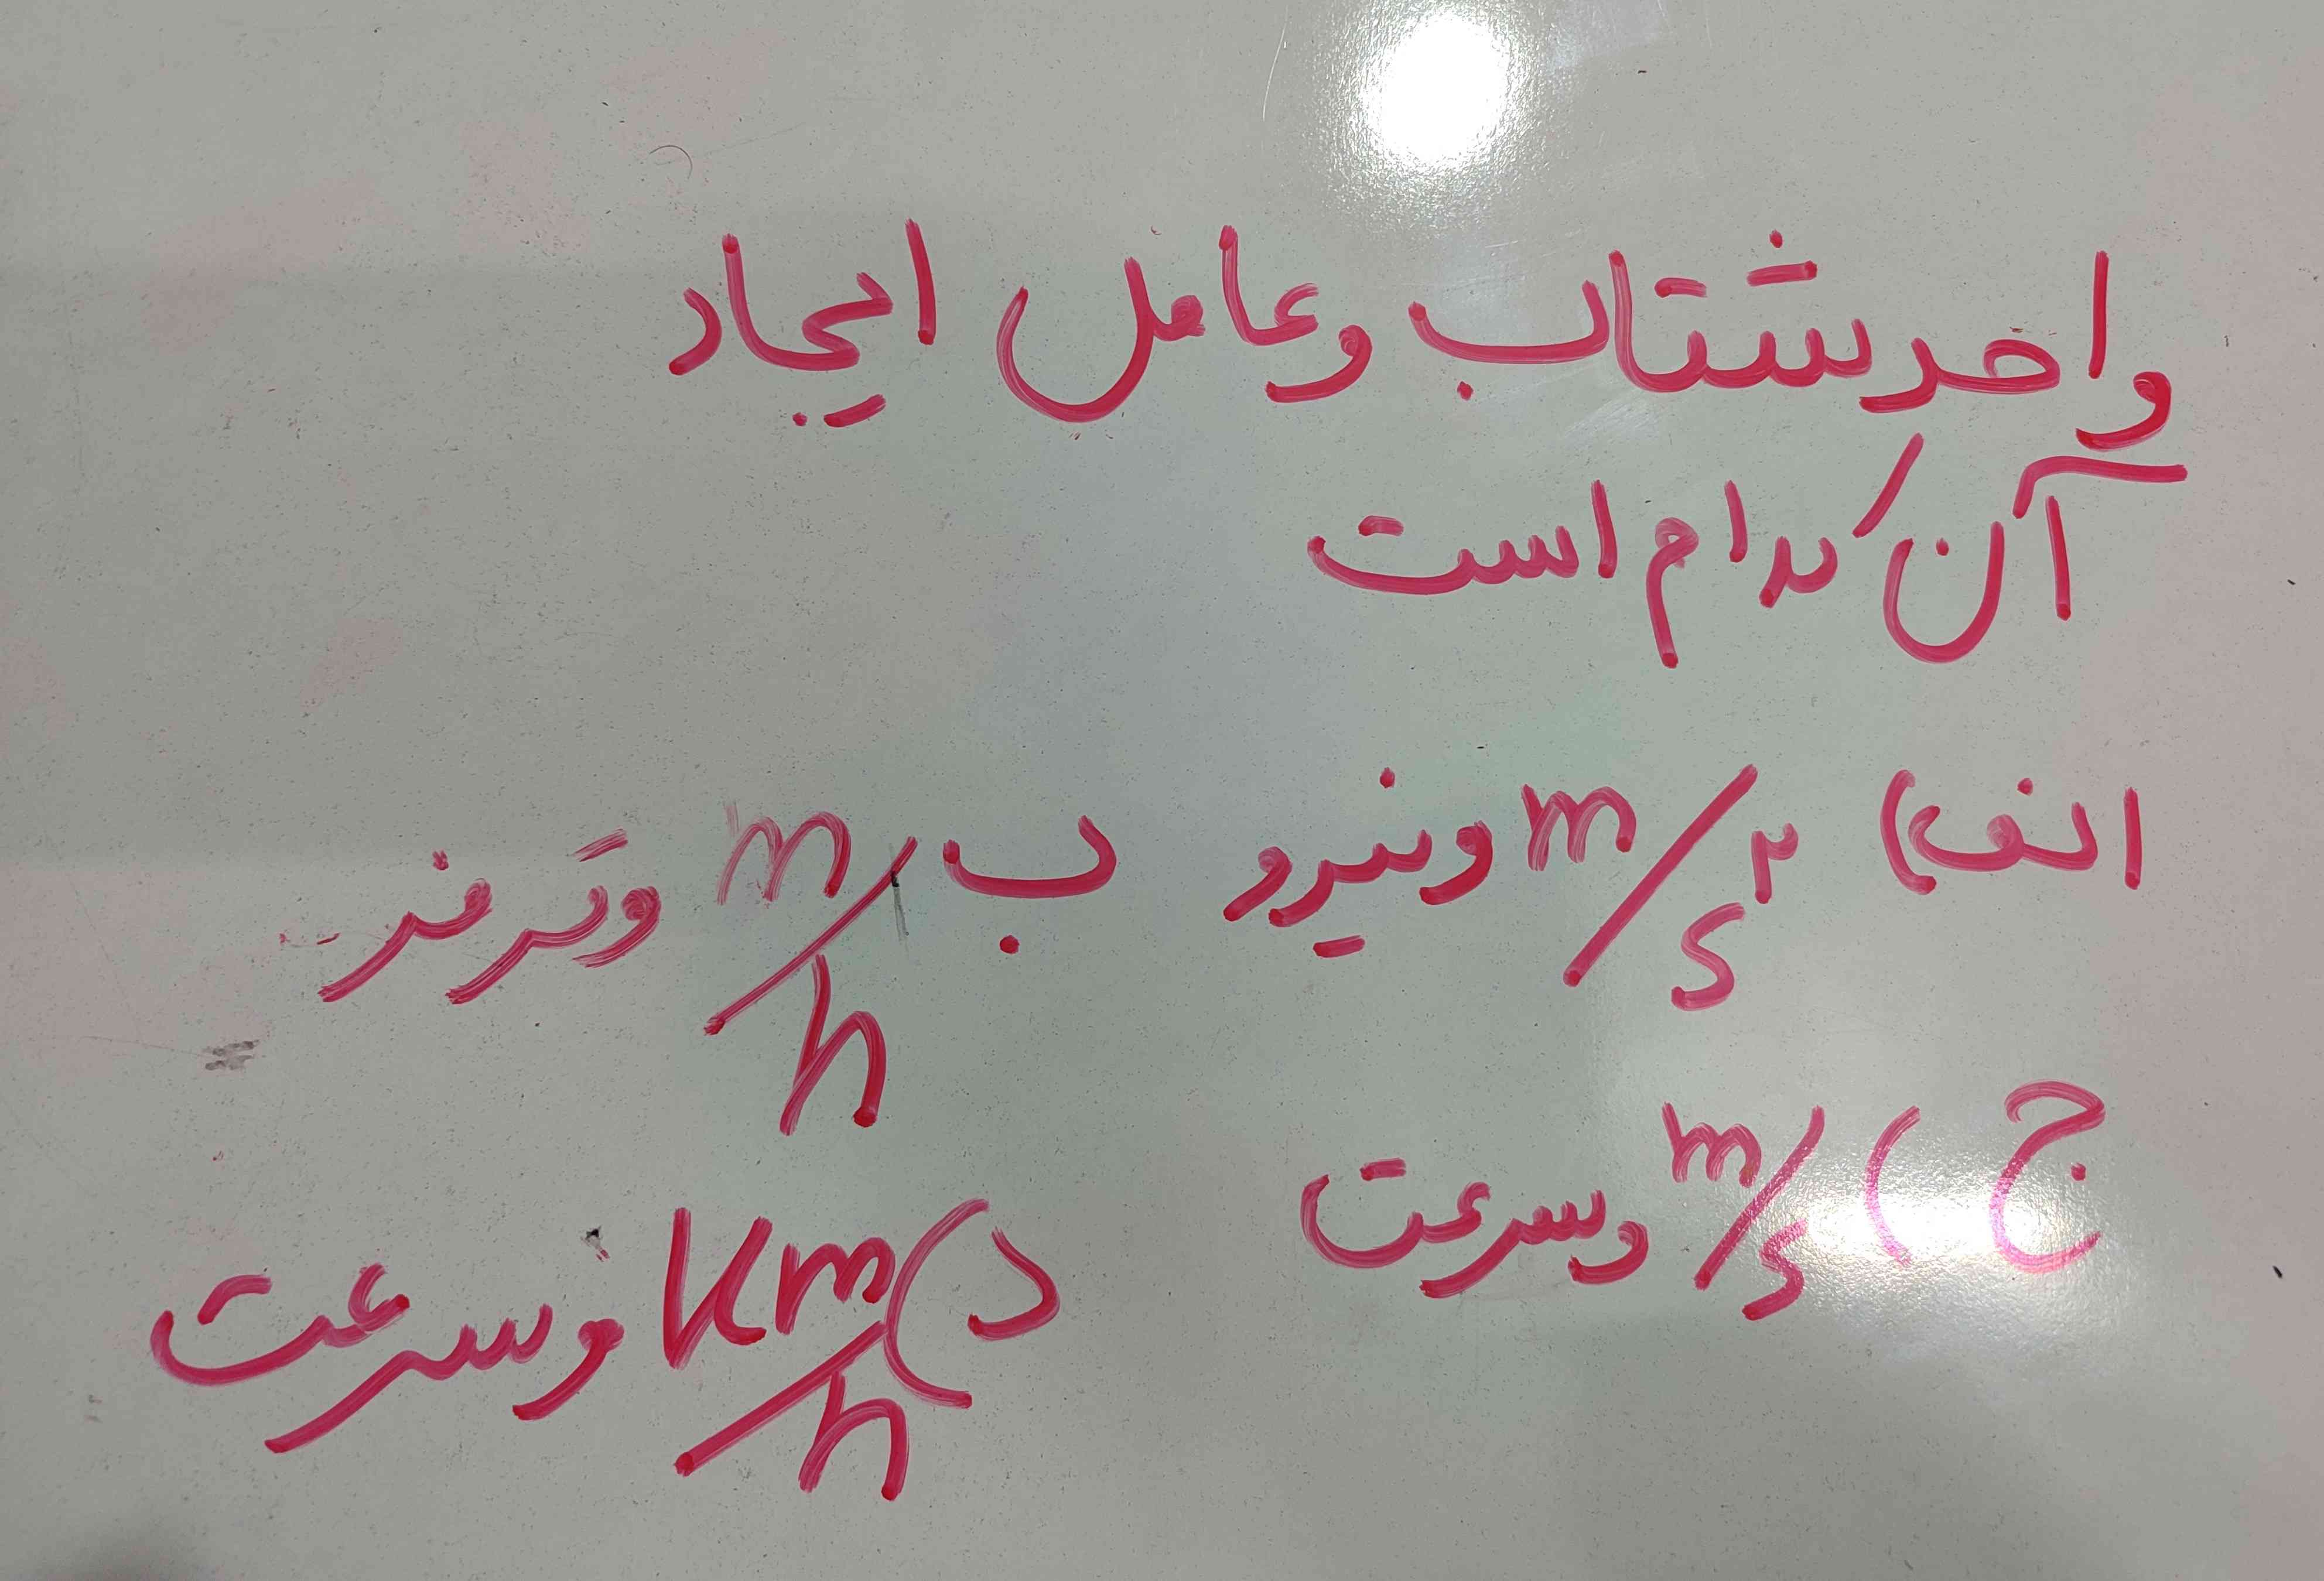 واحد شتاب و عامل ایجاد
آن کدام است
الف) m/s² و نیرو ب m/h و ترمز
ج) m/s و سرعت
د) km/h و سرعت